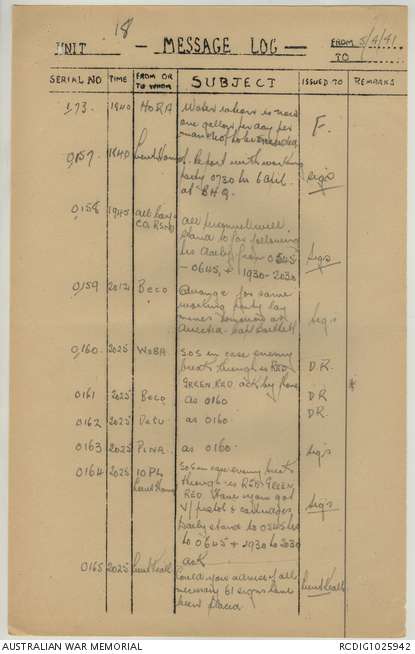 18
UNIT — MESSAGE LOG — FROM 5/4/41
TO
SERIAL NO TIME FROM OR TO WHOM SUBJECT ISSUED TO REMARKS
173. 1940 HORA Water ration is now
one gallon per day per
man F.
0157 1840 Report with working
party 0730 hr 6 April
at BHQ. Sigs
0158 1945 All personnel will
stand to for following
hrs daily from 0545
- 0645, + 1930-2030 Sigs
0159 2012 BECO Arrange for same
working party lay
mines tomorrow as
Sigs
0160 2025 WOBA SOS in case enemy
break through is RED
GREEN RED ack by fone DR.
0161 2025 BECO as 0160 DR
0162 2025 as 0160 DR.
0163 2025 as 0160. Sigs
0164 2025 10 PL SOS in case enemy break
through is RED GREEN
RED. Have you got
V/ pistol & cartridges,
Daily stand to 0545 hrs
to 0645 + 1930 to 2030
ack Sigs
0165 2025 Could you advise if all
necessary 61 signs have
been placed
AUSTRALIAN WAR MEMORIAL RCDIG1025942